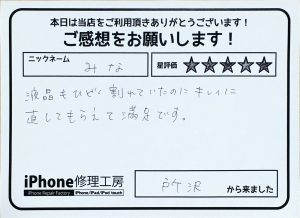 本日は当店をご利用頂きありがとうございます！
ご感想をお願いします！
ニックネーム
みな
星評価 ★★★★★
液晶もひどく割れていたのにキレイに
直してもらえて満足です。
iPhone修理工房
iPhone Repair Factory iPhone/iPad/iPod touch
所沢
から来ました